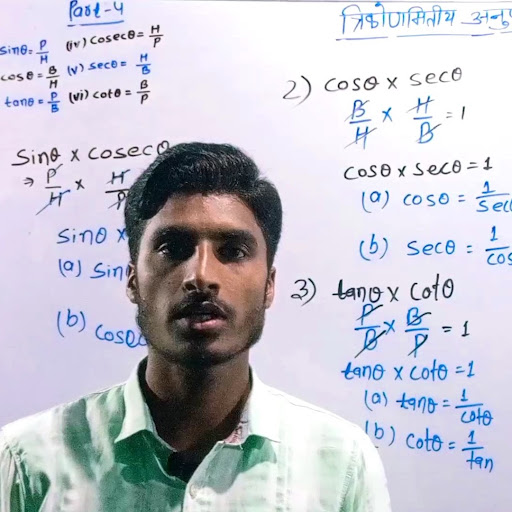 Part-4
त्रिकोणमितीय
sinθ = P/H (iv) cosecθ = H/P
cosθ = B/H (v) secθ = H/B
tanθ = P/B (vi) cotθ = B/P
Sinθ × cosecθ
⇒ P/H × H/P
Sinθ ×
(a) Sin
(b) cosec
2) cosθ × secθ
B/H × H/B = 1
cosθ × secθ = 1
(a) cosθ = 1/sec
(b) secθ = 1/cos
3) tanθ × cotθ
P/B × B/P = 1
tanθ × cotθ = 1
(a) tanθ = 1/cotθ
(b) cotθ = 1/tan